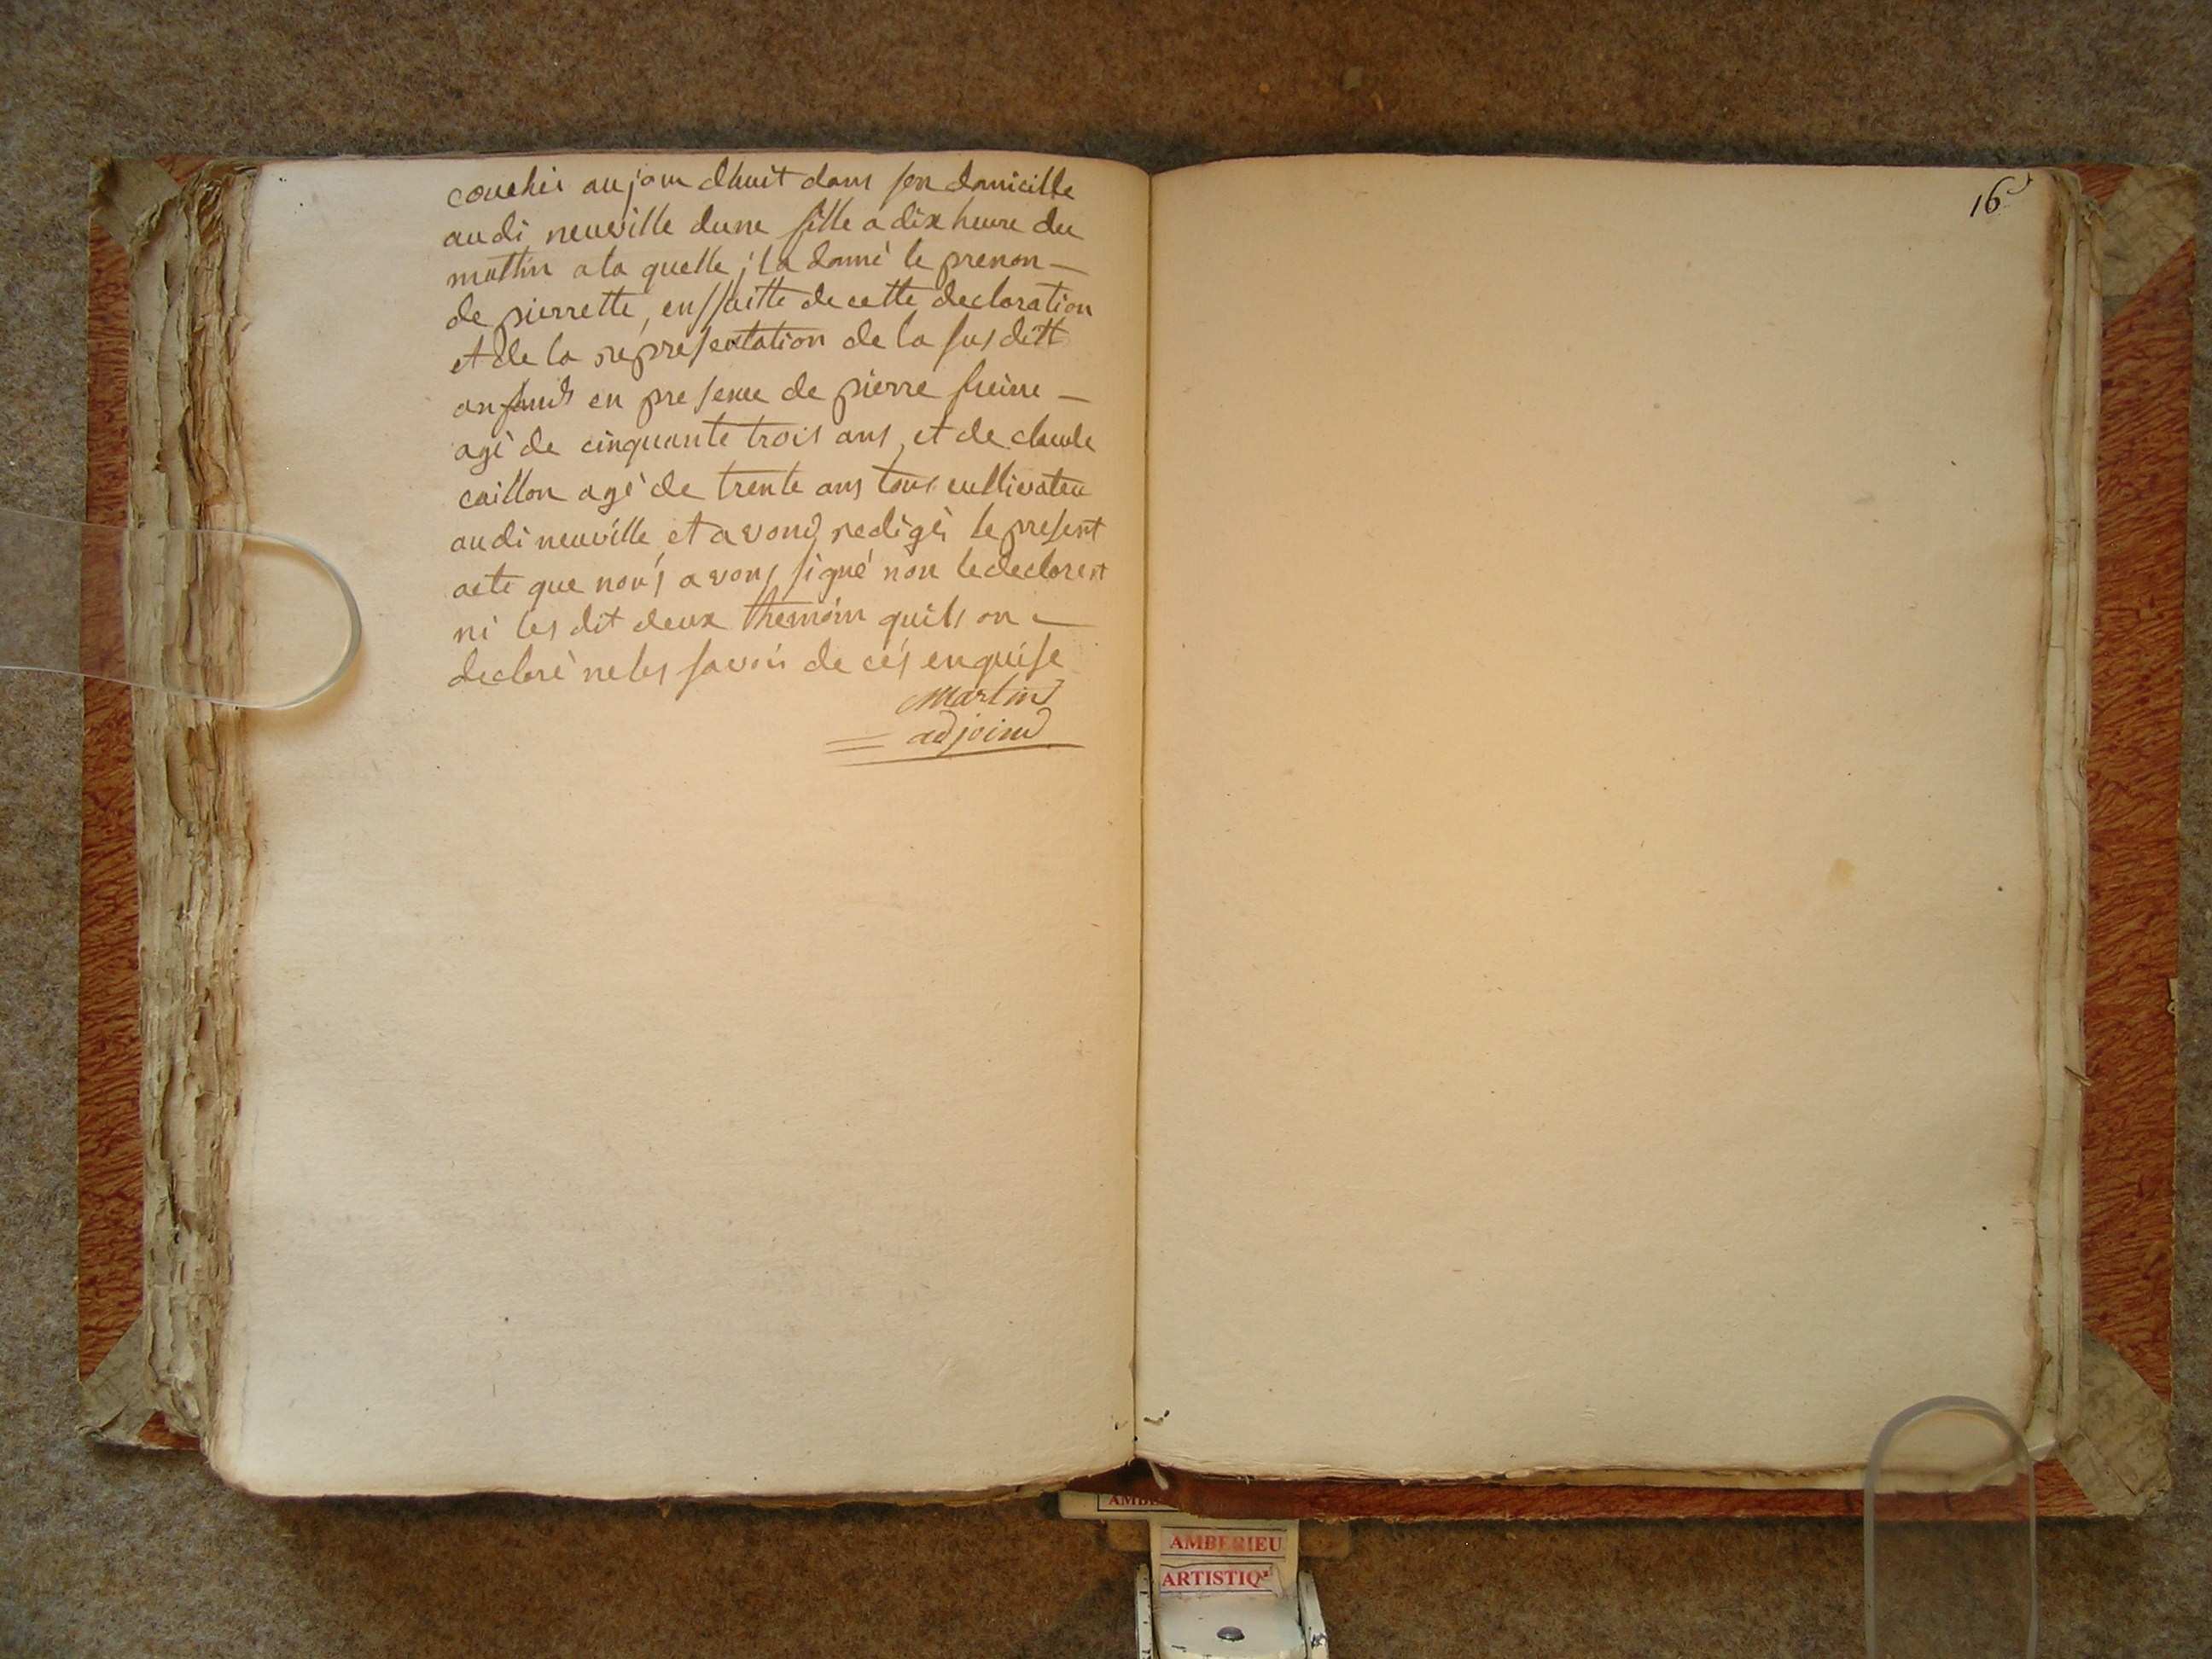 couchés aujour dhuit dans son domicille
audi neuville dune fille a dix heure du
mattin a la quelle ; la donné le prenon —
de pierrette, enssuitte de cette declaration
et de la representation de la sus ditt
en presence de pierre —
agé de cinquante trois ans, et de claude
caillon agé de trente ans tous cultivateu
audi neuville et avons redigés le present
acte que nous avons signé non le declarent
ni les dit deux themoin quils on —
declaré ne les savoir de cés enquise
Martin
adjoind
16
AMBERIEU
ARTISTIQ